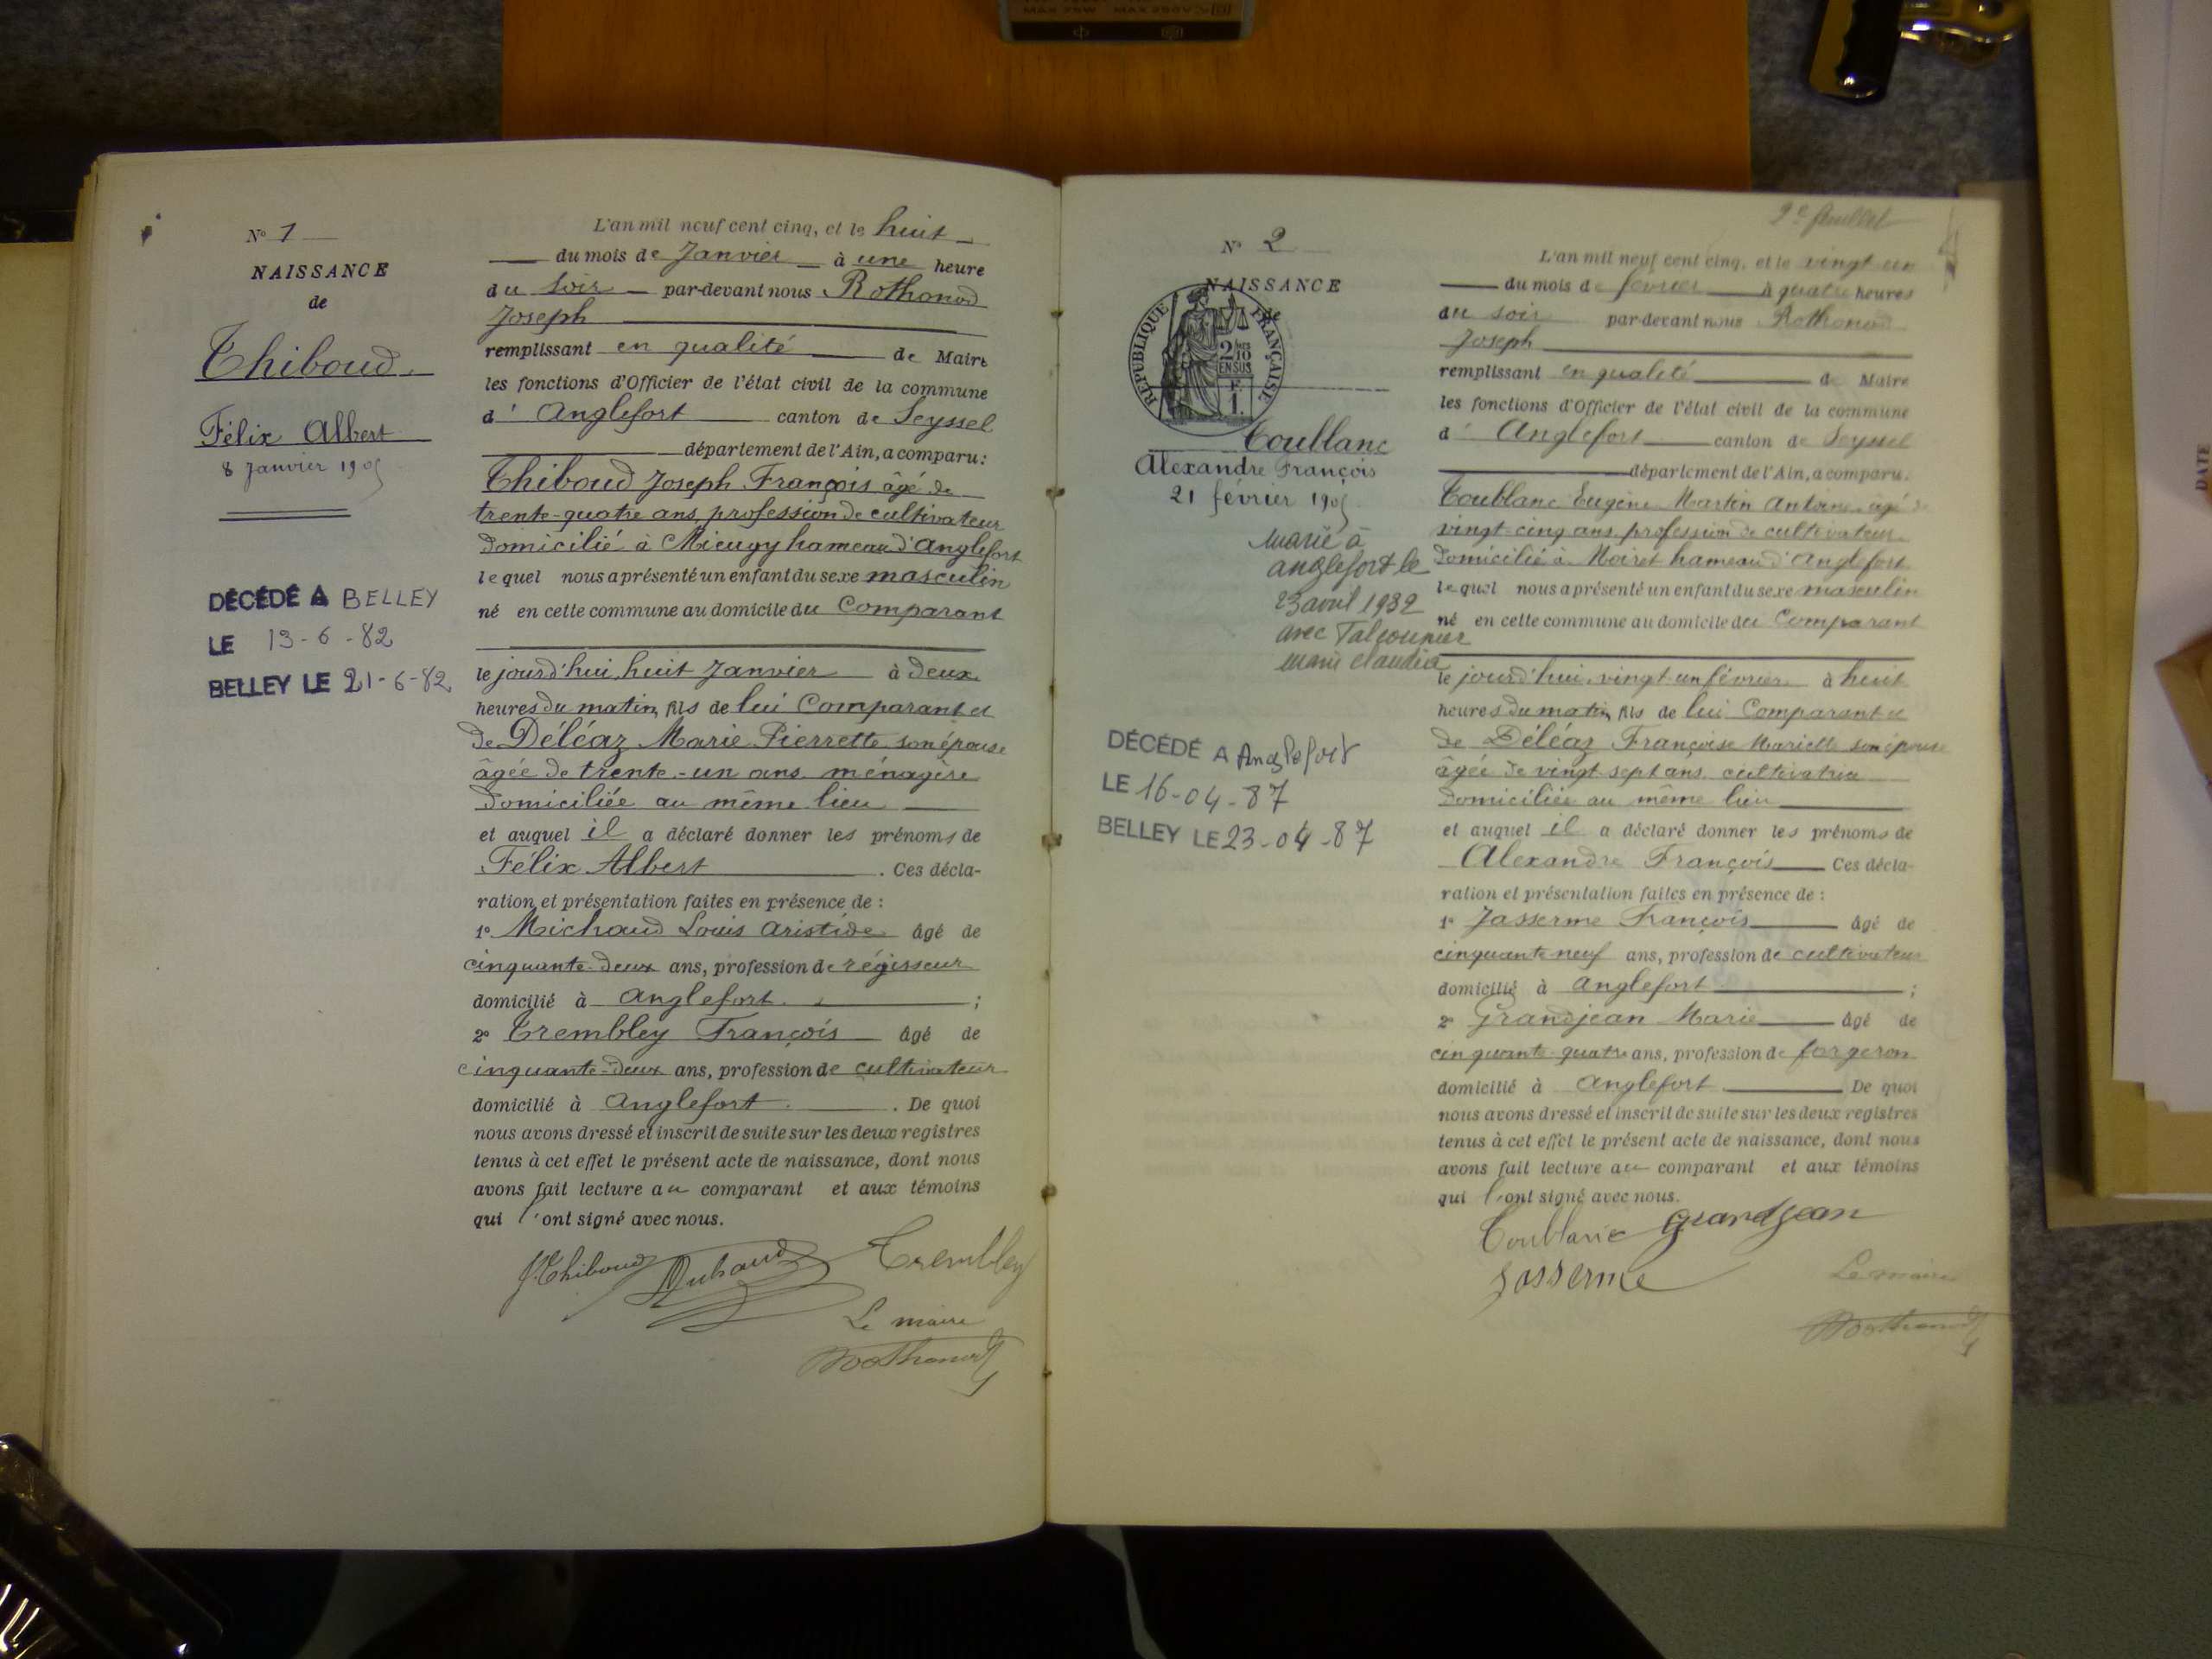 MAX 75W MAX 250V
N° 1
NAISSANCE
de
Thiboud
Félix Albert
8 Janvier 1905
DÉCÉDÉ A BELLEY
LE 13-6-82
BELLEY LE 21-6-82
L'an mil neuf cent cinq, et le huit
du mois de Janvier à une heure
du soir par-devant nous Rothonod
Joseph
remplissant en qualité de Maire
les fonctions d'Officier de l'état civil de la commune
d' Anglefort canton de Seyssel
département de l'Ain, a comparu:
Thiboud Joseph François âgé de
trente-quatre ans, profession de cultivateur
domicilié à Mieugy hameau d'Anglefort
lequel nous a présenté un enfant du sexe masculin
né en cette commune au domicile du Comparant
le jourd'hui huit Janvier à deux
heures du matin, fils de lui Comparant et
de Déléaz Marie Pierrette son épouse
âgée de trente-un ans ménagère
domiciliée au même lieu
et auquel il a déclaré donner les prénoms de
Félix Albert . Ces décla-
ration et présentation faites en présence de :
1° Michaud Louis Aristide âgé de
cinquante-deux ans, profession de régisseur
domicilié à Anglefort ;
2° Trembley François âgé de
cinquante-deux ans, profession de cultivateur
domicilié à Anglefort . De quoi
nous avons dressé et inscrit de suite sur les deux registres
tenus à cet effet le présent acte de naissance, dont nous
avons fait lecture au comparant et aux témoins
qui l'ont signé avec nous.
J. Thiboud Trembley
Le maire
Rothonod
2e feuillet
N° 2
NAISSANCE
de
RÉPUBLIQUE FRANÇAISE
2/10
EN SUS
F.
1.
Toublanc
Alexandre François
21 février 1905
marié à
anglefort le
23 avril 1932
avec
marie claudia
DÉCÉDÉ A Anglefort
LE 16-04-87
BELLEY LE 23-04-87
L'an mil neuf cent cinq, et le vingt un
du mois de février à quatre heures
du soir par-devant nous Rothonod
Joseph
remplissant en qualité de Maire
les fonctions d'Officier de l'état civil de la commune
d' Anglefort canton de Seyssel
département de l'Ain, a comparu.
Toublanc Eugène Martin Antoine âgé de
vingt-cinq ans, profession de cultivateur
domicilié à Moiret hameau d'Anglefort
lequel nous a présenté un enfant du sexe masculin
né en cette commune au domicile du Comparant
le jourd'hui vingt-un février à huit
heures du matin, fils de lui Comparant et
de Déléaz Françoise Mariette son épouse
âgée de vingt-sept ans cultivatrice
domiciliée au même lieu
et auquel il a déclaré donner les prénoms de
Alexandre François Ces décla-
ration et présentation faites en présence de :
1° Jasserme François âgé de
cinquante neuf ans, profession de cultivateur
domicilié à Anglefort ;
2° Grandjean Marie âgé de
cinquante-quatre ans, profession de forgeron
domicilié à Anglefort De quoi
nous avons dressé et inscrit de suite sur les deux registres
tenus à cet effet le présent acte de naissance, dont nous
avons fait lecture au comparant et aux témoins
qui l'ont signé avec nous.
Toublanc Grandjean
Jasserme Le maire
Rothonod
DATE